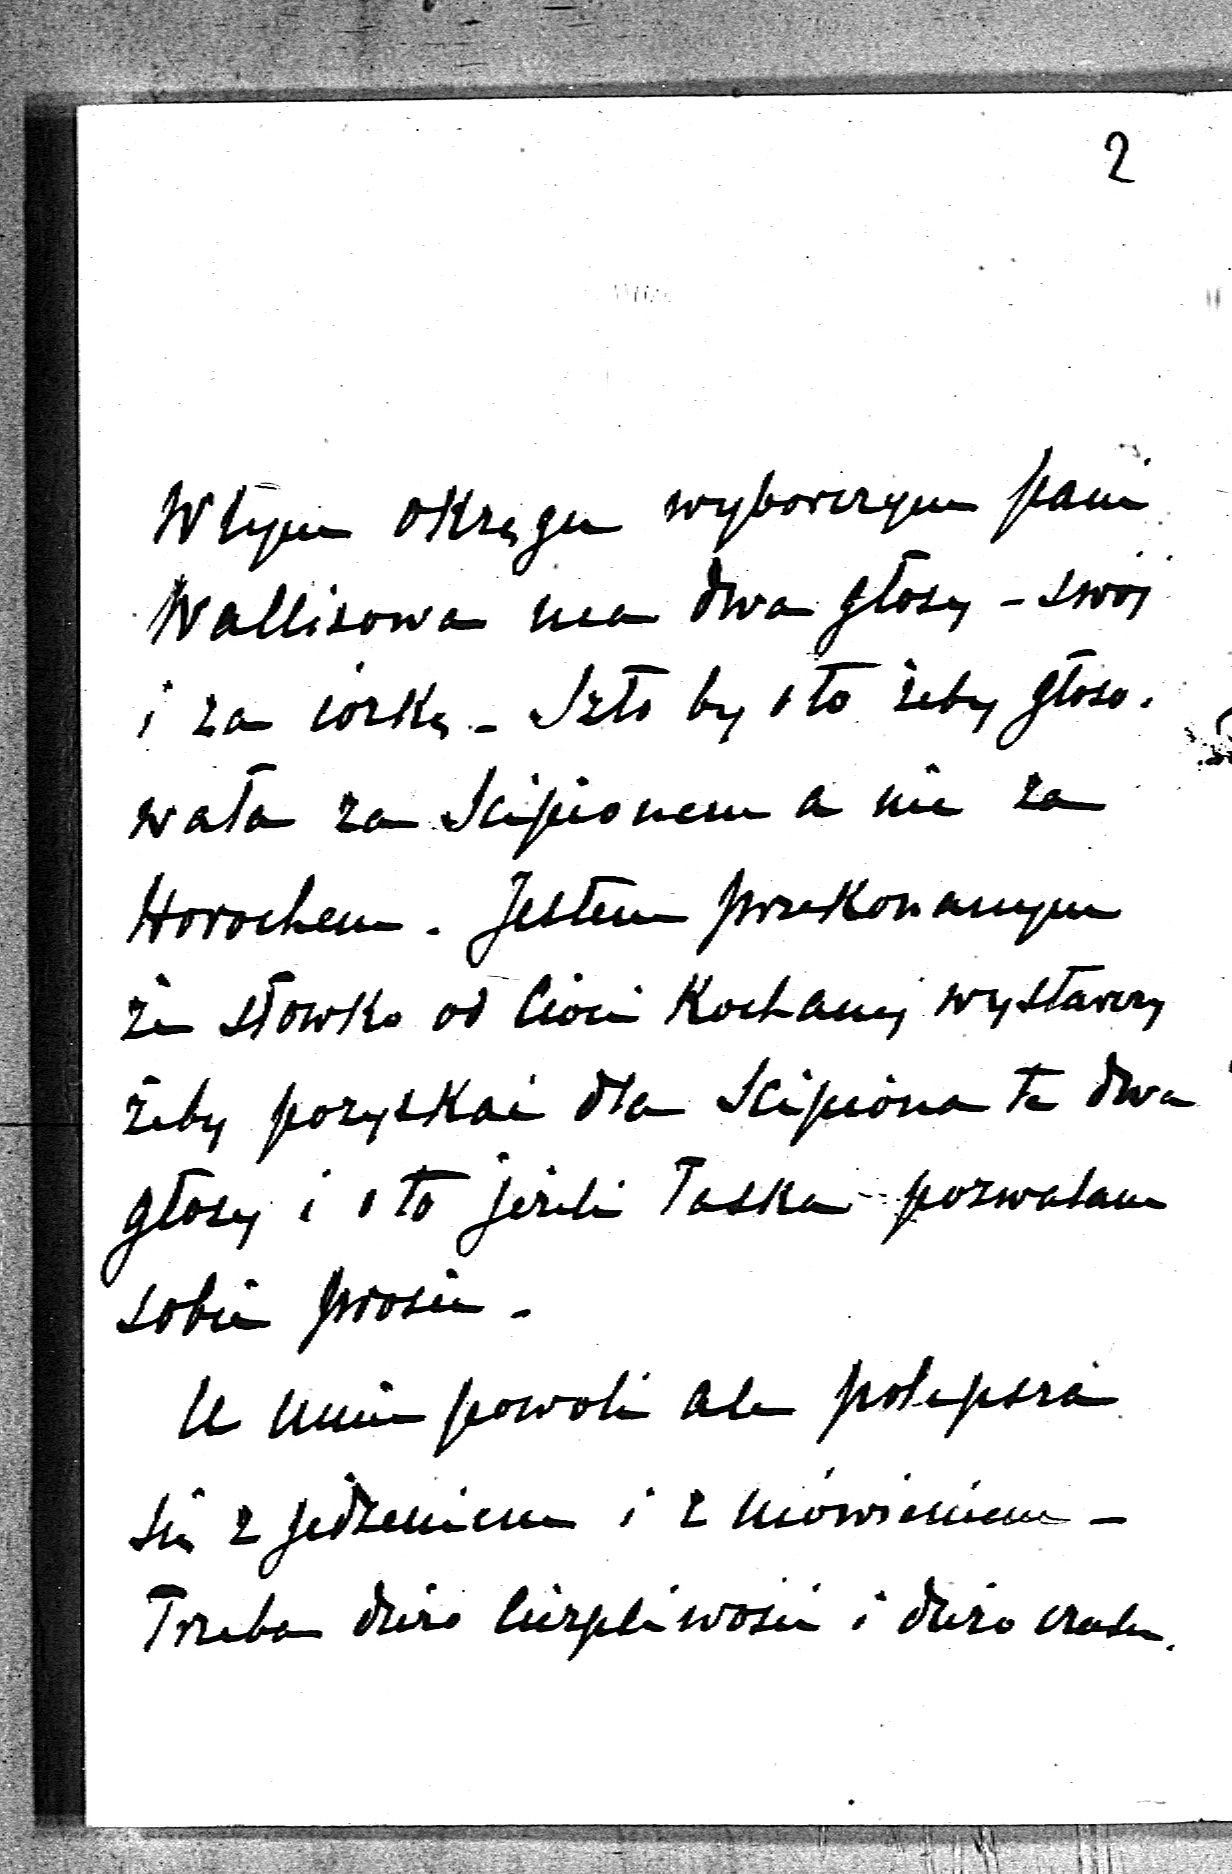 2
W tym okręgu wyborczym pani
Wallisowa ma dwa głosy – swój
i za córkę – Szło by o to żeby głoso-
wała za Scipionem a nie za
Horochem. Jestem przekonanym
że słówko od Cioci Kochanej wystarczy
żeby pozyskać dla Scipiona te dwa
głosy i o to jeżeli łaska pozwalam
sobie prosić.
U mnie powoli ale polepsza
się z jedzeniem i z mówieniem –
Trzeba dużo cierpliwości i dużo czasu.